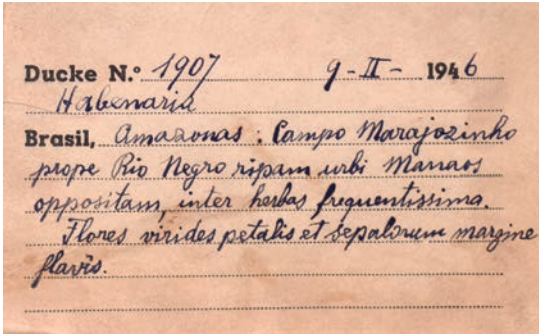 Ducke N.° 1907 9-II- 1946
Habenaria
Brasil, Amazonas: Campo Marajozinho
prope Rio Negro ripam urbi Manaos
oppositam, inter herbas frequentissima.
Flores virides petalis et sepalorum margine
flavis.